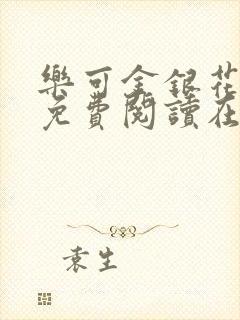 樂可金銀花
免費閱讀在
袁生